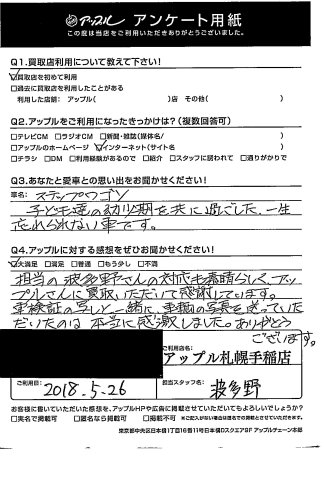 アップル アンケート用紙
この度は当店をご利用いただきありがとうございました。
Q1.買取店利用について教えて下さい!
☑買取店を初めて利用
□過去に買取店を利用したことがある
利用した店舗: アップル( )店 その他( )
Q2.アップルをご利用になったきっかけは?(複数回答可)
□テレビCM □ラジオCM □新聞・雑誌(媒体名/ )
□アップルのホームページ ☑インターネット(サイト名 )
□チラシ □DM □利用経験があるので □紹介 □スタッフに誘われて □通りがかりで
Q3.あなたと愛車との思い出をお聞かせください!
車名: ステップワゴン
子ども達の幼少期を共に過ごした、一生
忘れられない車です。
Q4.アップルに対する感想をぜひお聞かせください!
☑大満足 □満足 □普通 □もう少し □不満
担当の波多野さんの対応も素晴らしく、アッ
プルさんに買取いただいて感謝しています。
車検証の写しと一緒に、車両の写真を送っていた
だいたのは本当に感激しました。ありがとう
ございます。
ご利用店名:
アップル札幌手稲店
ご利用日: 2018.5.26
担当スタッフ名: 波多野
お客様に書いていただいた感想を、アップルHPや広告に掲載させていただいてもよろしいでしょうか?
□実名で掲載可 □匿名なら掲載可 □掲載不可 ※ご記入がない場合は匿名での掲載とさせていただきます。
東京都中央区日本橋1丁目16番11号日本橋DスクエアGF アップルチェーン本部